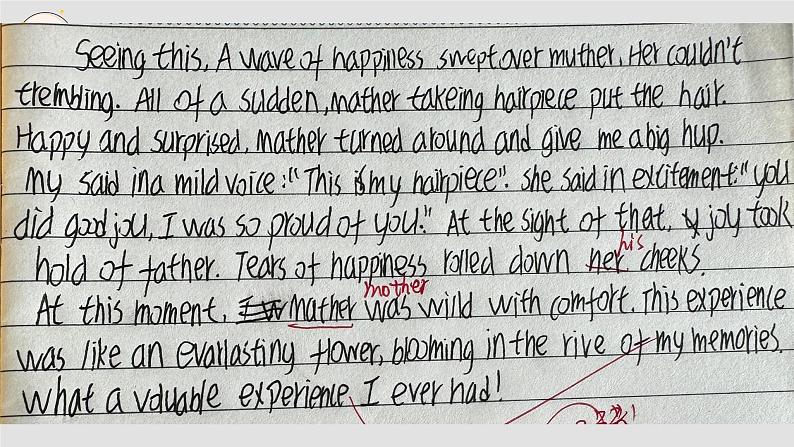 Seeing this, A wave of happiness swept over muther. Her couldn't
trembling. All of a sudden, mather takeing hairpiece put the hair.
Happy and surprised, mather turned around and give me a big hup.
My said in a mild voice: "This is my hairpiece". She said in excitement: "you
did good jou, I was so proud of you!" At the sight of that, joy took
hold of father. Tears of happiness rolled down her cheeks.
his
At this moment, mather was wild with comfort. This experience
mother
was like an evarlasting flower, blooming in the rive of my memories.
What a valuable experience I ever had!